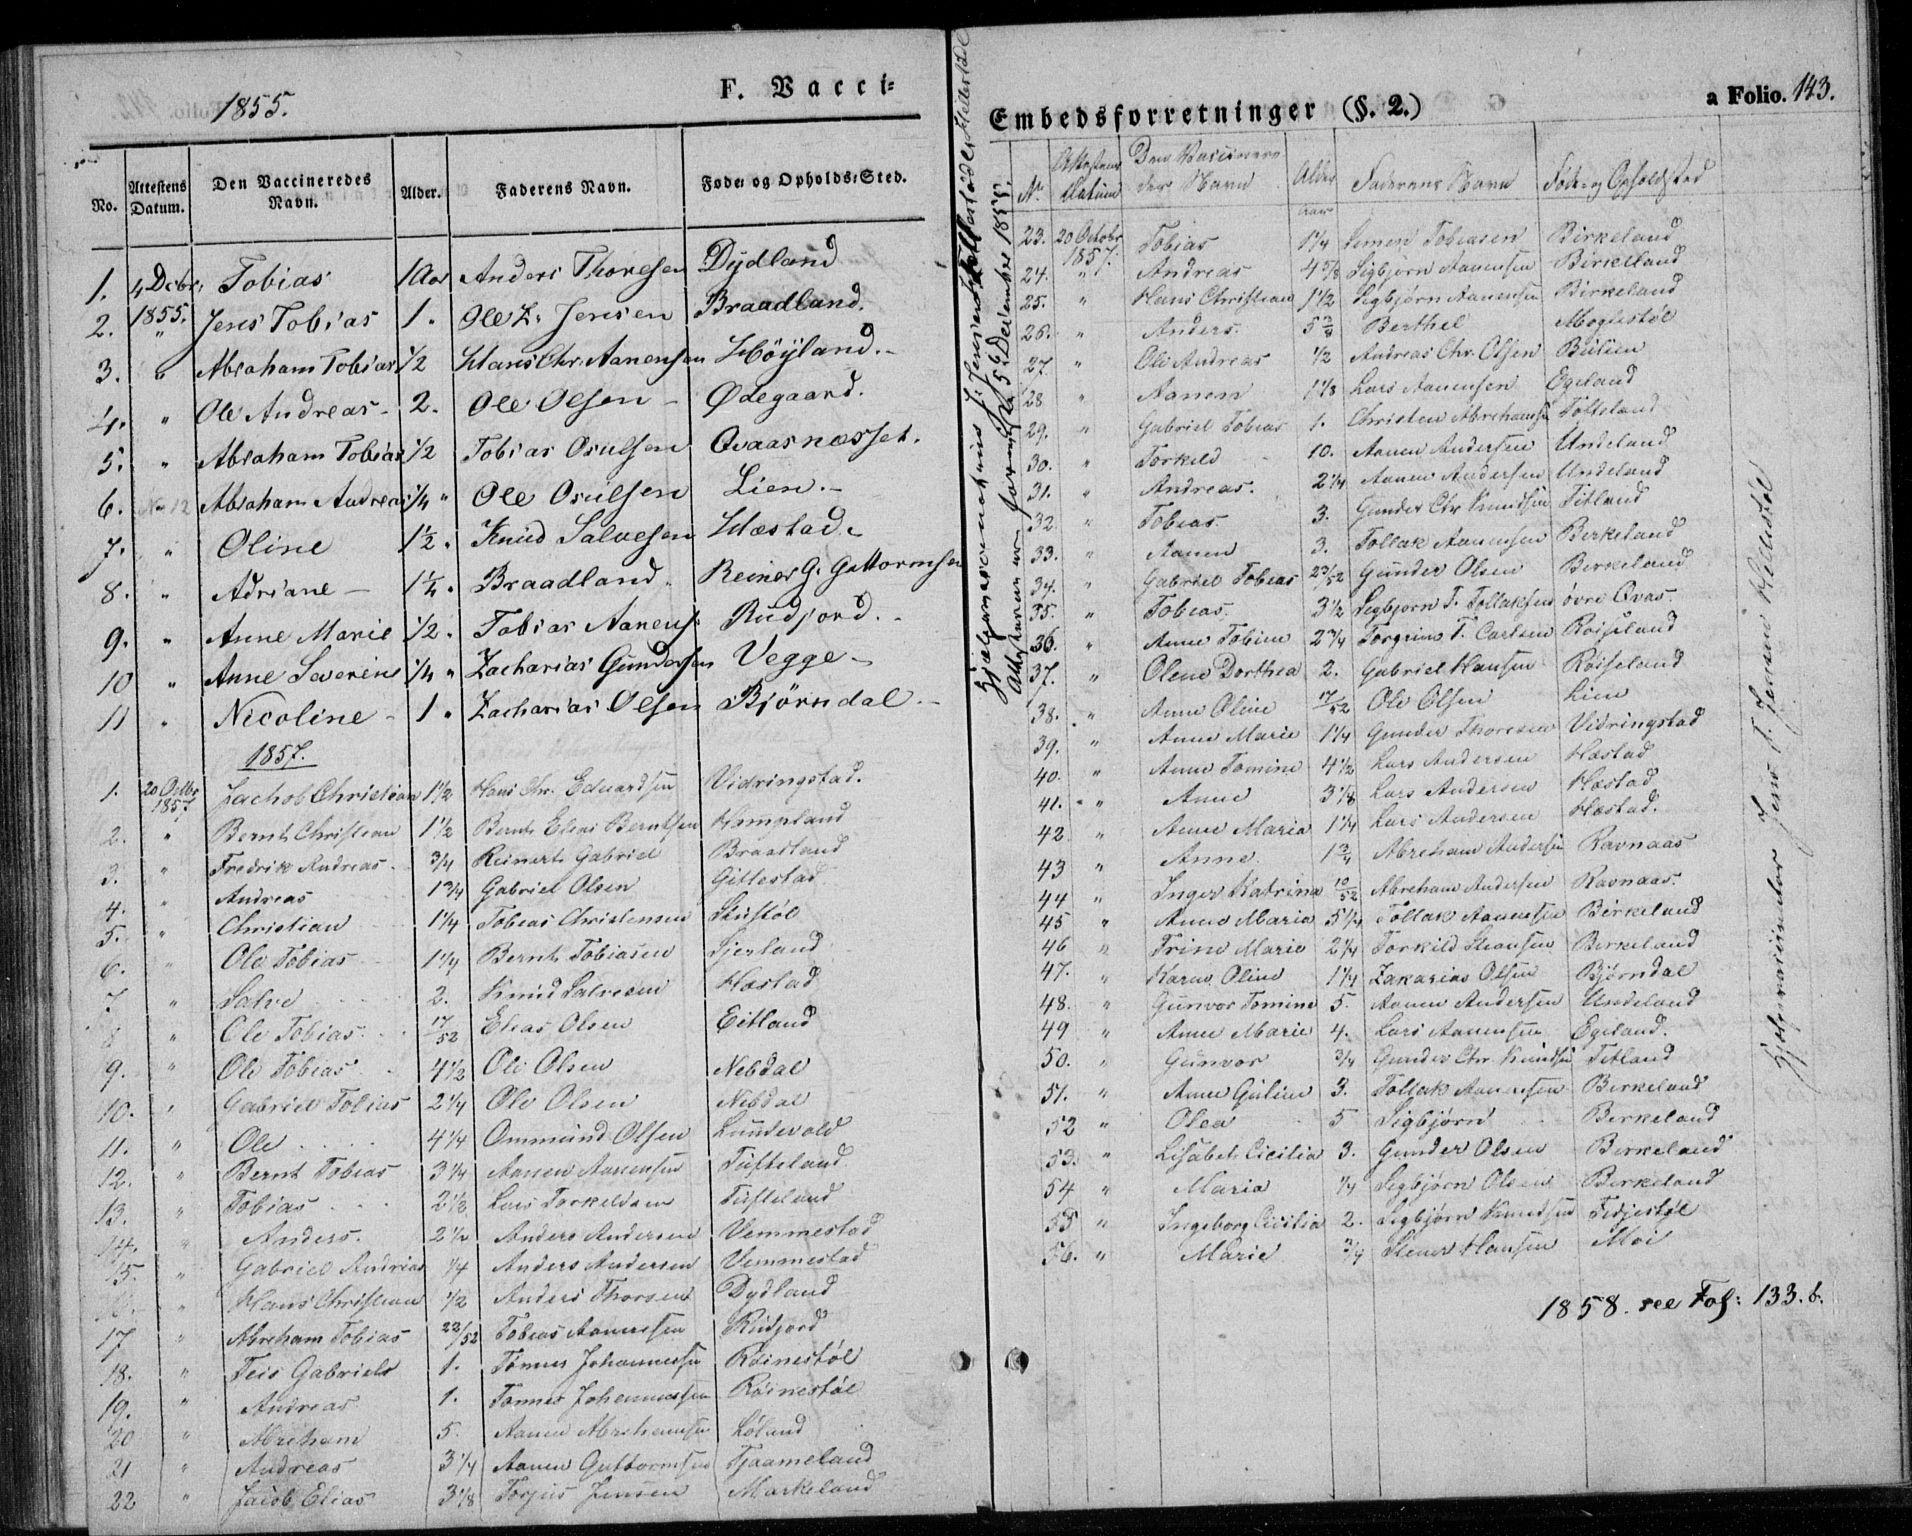 1855.
F. Vacci=
No. Attestens Datum. Den Vaccineredes Navn. Alder. Faderens Navn. Føde= og Opholds=Sted.
1. 4 Decbr. Tobias 1 Aar Anders Thoresen Dydland
2. 1855. " Jens Tobias 1. Ole Z. Jensen Braadland.
3. " Abraham Tobias 1/2 Hans Chr. Aanensen Høyland.
4. " Ole Andreas 2. Ole Olsen Ødegaard.
5. " Abraham Tobias 1/2 Tobias Osulsen Qvaasnæsset.
6. No 12 Abraham Andreas 1/4 " Ole Osulsen Lien.
7. " Oline 1 1/2 " Knud Salvesen Hæstad.
8. " Adriane 1 1/4 " Braadland Reiner G. Guttormsen
9. " Anne Marie 1/2 " Tobias Aanens. Rudjord.
10 " Anne Severine 1/4 " Zacharias Gundersen Vegge
11 " Nicoline 1 " Zacharias Olsen Bjørndal
1857.
1. 20 Octbr 1857 Jachob Christian 1 1/2 Hans Chr. Eduardsen Vidringstad.
2. " Bernt Christian 1 1/2 Bernt Elias Berntsen Hompland
3. " Fredrik Andreas 3/4 Reinert Gabriel Braadland
4. " Andreas 1 3/4 Gabriel Olsen Gittestad
5. " Christian 1 1/4 Tobias Christensen
6. " Ole Tobias 1 1/4 Bernt Tobiasen
7 " Salve 2. Knud Salvesen Hæstad
8 " Ole Tobias 17/52 Elias Olsen Eitland
9. " Ole Tobias 4 1/2 Ole Olsen Nebdal
10. " Gabriel Tobias 2 1/4 Ole Olsen Nebdal
11. " Ole 4 1/4 Ommund Olsen Lundevold
12. " Bernt Tobias 3 1/4 Aanen Aanensen Tufteland
13. " Tobias 2 1/2 Lars Torkeldsen Tufteland
14. " Anders. 2 1/2 Anders Andersen Vemmestad
15. " Gabriel Andrias 1/4 Anders Andersen Vemmestad
16. " Hans Christian 1/2 Anders Thorsen Dydland
17 " Abreham Tobias 22/52 Tobias Aanensen Rudjord
18. " Teis Gabriels 1. Tønnes Johannessen Røinestøl
19. " Andreas 1. Tønnes Johannessen Røinestøl
20 " Abreham 5. Aanen Abrehamsen Løland
21 " Andreas 3 1/4 Aanen Guttormsen Tjaameland
22 " Jacob Elias 3 1/8 Torjus Jensen Markeland
Embedsforretninger (§. 2.)
a Folio. 143.
Nr. Attestens Datum Den Vaccineredes Navn Alder Faderens Navn Føde og Opholdsted
Aar
23. 20 Octobr 1857. Tobias 1 1/4 Simon Tobiasen Birkeland
24. " Andreas 4 5/8 Sigbjørn Aanensen Birkeland
25. " Hans Christian 1 1/2 Sigbjørn Aanensen Birkeland
26. " Anders. 5 3/4 Berthel Moglestøl
27. " Ole Andreas 1/2 Andreas Chr. Olsen
28 " Aanen 1 1/8 Lars Aanensen Egeland
29. " Gabriel Tobias 1. Christen Abrehamsen
30. " Torkild 10. Aanen Andersen Undeland
31. " Andreas. 2 1/4 Aanen Andersen Undeland
32. " Tobias. 3. Gunder Chr. Knudsen Titland
33. " Aanen 3. Tollak Aanensen Berkeland
34. " Gabriel Tobias 23/52 Gunder Olsen Berkeland
35. " Tobias. 3 1/2 Segbjørn T. Tollaksen øvre Qvas.
36. " Anne Tobine 2 3/4 Torgrim T. Carlsen Roiseland
37. " Olene Dorthea 2. Gabriel Hansen Røiseland
38. " Anne Oline 17/52 Ole Olsen Lien
39. " Anne Marie 1 1/4 Gunder Thoresen Vidringstad
40. " Anne Tomine 4 1/2 Lars Andersen Hæstad
41. " Anne 3 1/8 Lars Andersen Hæstad
42 " Anne Maria 1 1/4 Lars Andersen Hæstad.
43 " Anne 1 3/4 Abreham Andersen Ravnaas
44 " Inger Katrina 10/52 Abreham Andersen Ravnaas.
45 " Anne Maria 5 1/4 Tollak Aanensen Birkeland
46 " Trine Marie 2 1/4 Torkild Birkeland
47. " Karen Oline 1 1/4 Zakarias Olsen Bjørndal
48. " Gunvor Tomine 5. Aanen Andersen Undeland
49 " Anne Marie 4. Lars Aanensen Egeland.
50. " Gunvor 3/4 Gunder Chr. Knudsen Titland
51. " Anne Guline 3. Tollak Aanensen Berkeland
52 " Olea 5 Sigbjørn Berkeland
53. " Lisabet Cicilia 3. Gunder Olsen Berkeland
54 " Maria 1/4 Segbjørn Olsen Berkeland
55 " Ingeborg Cicilia 2. Segbjørn Knudsen Fedjestøl
56. " Marie 3/4 Stener Hansen Moi
1858. see Fol: 133.b.
Hjelpevaccinatør Jens T. Jensen Hellestøl